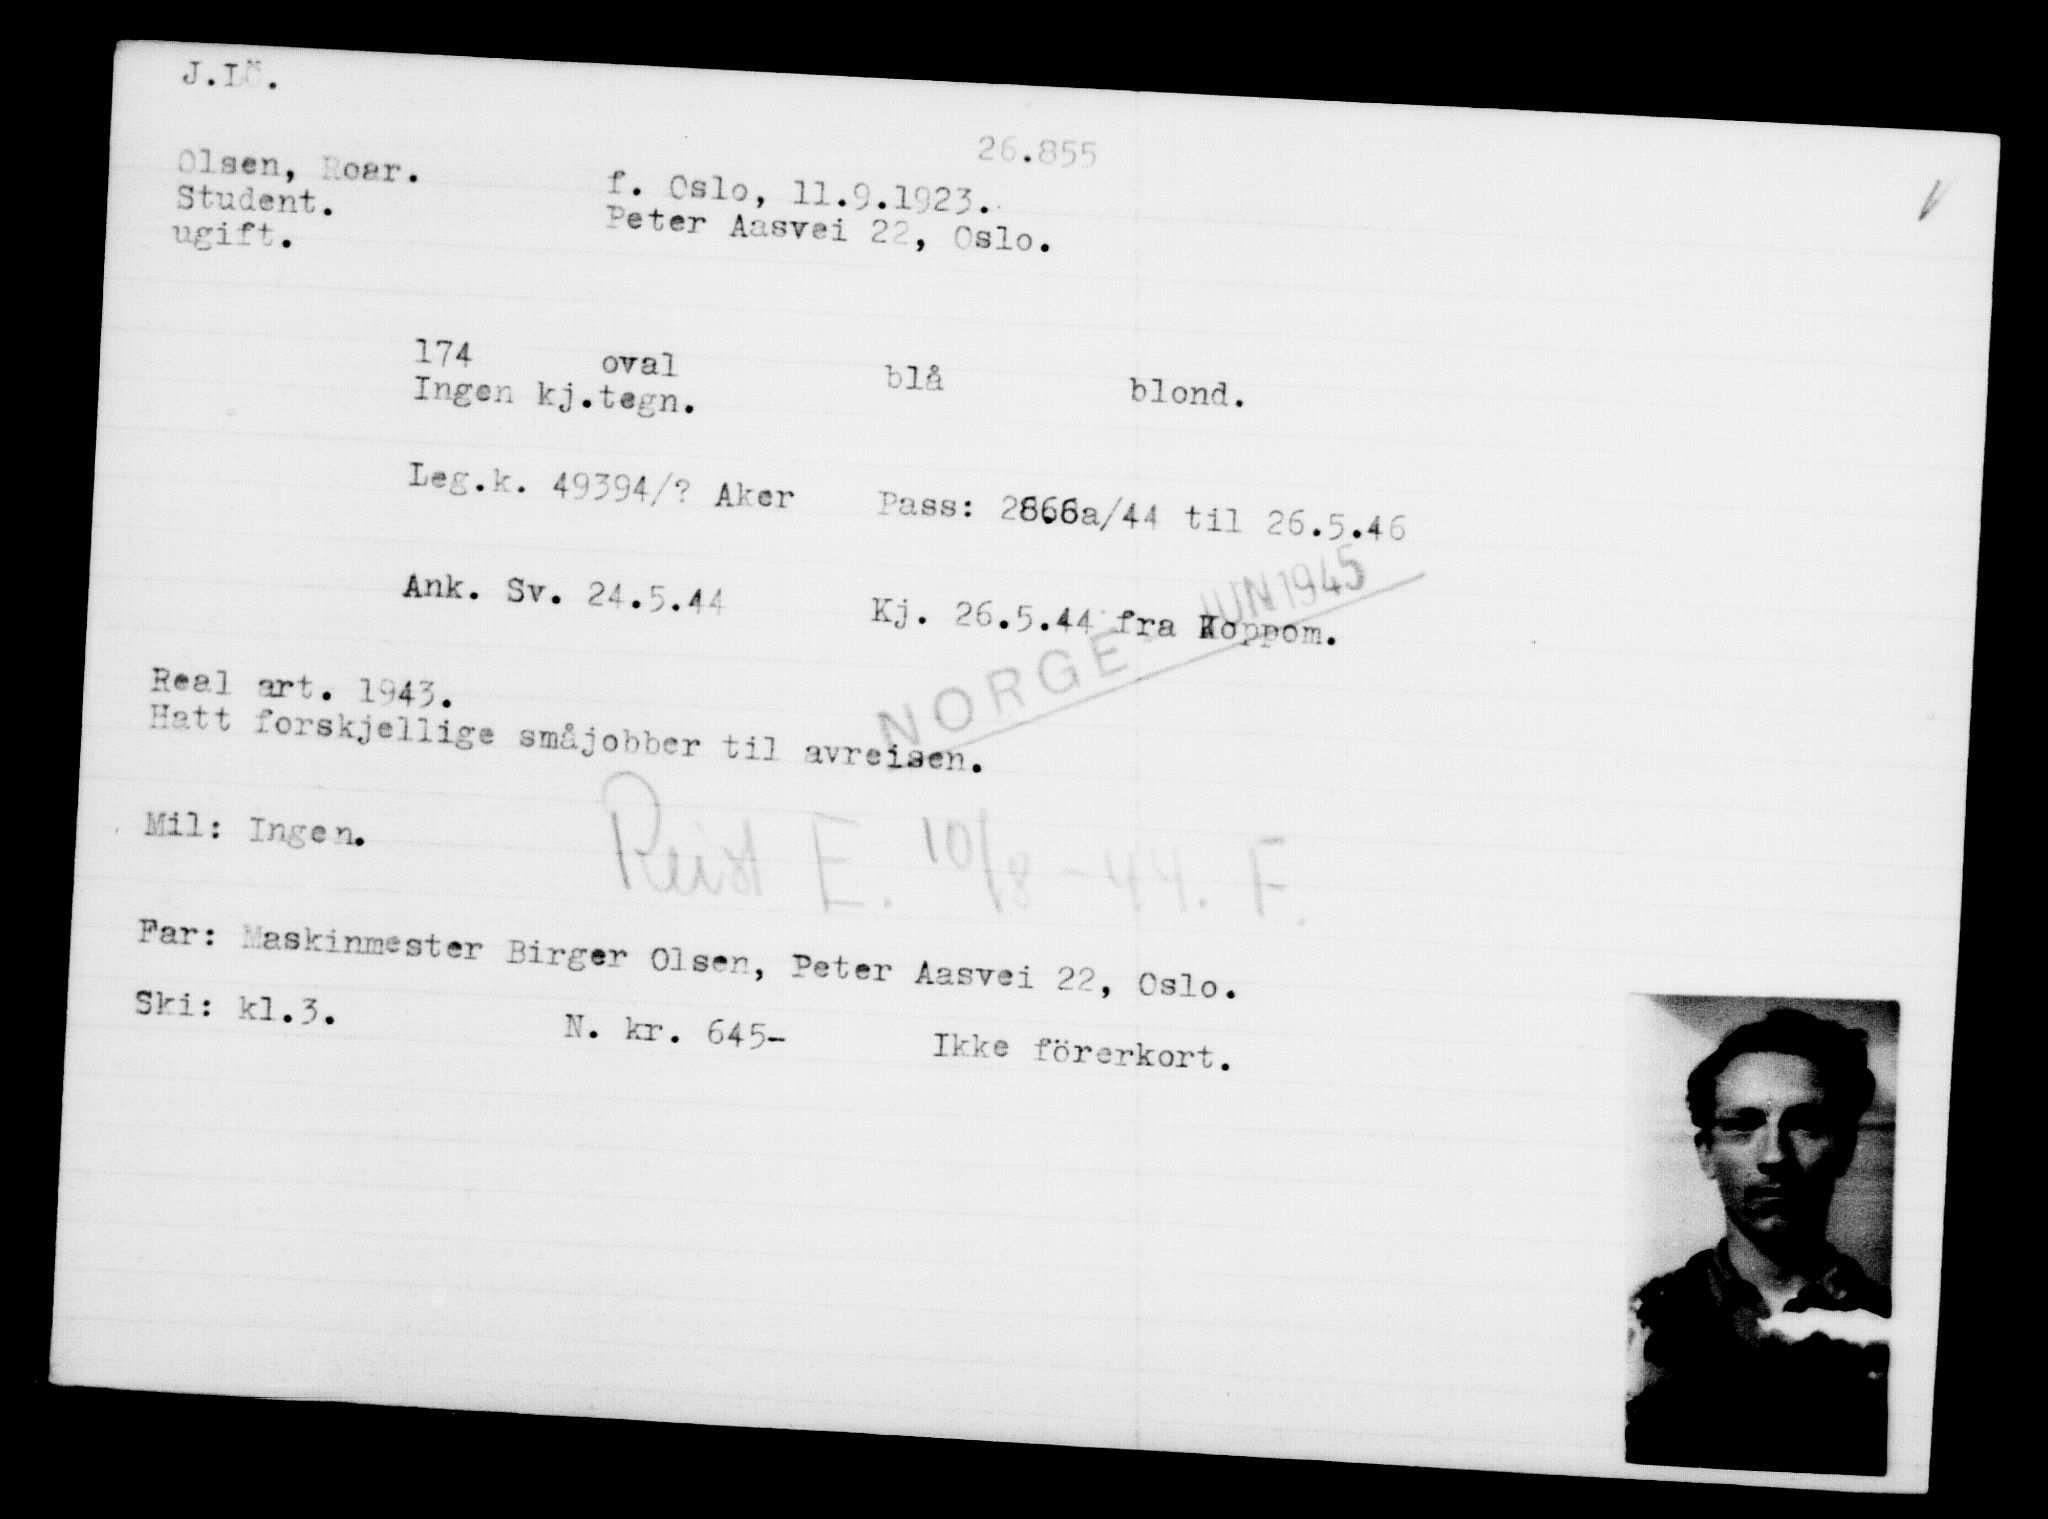 J.LÖ.
26.855
Olsen, Roar. f. Oslo, 11.9.1923.
Student. Peter Aasvei 22, Oslo.
ugift.
174 oval blå blond.
Ingen kj.tegn.
Leg.k. 49394/? Aker Pass: 2866a/44 til 26.5.46
Ank. Sv. 24.5.44 Kj. 26.5.44 fra Koppom.
NORGE JUN 1945
Real art. 1943.
Hatt forskjellige småjobber til avreisen.
Mil: Ingen.
Reist E. 10/8-44. F.
Far: Maskinmester Birger Olsen, Peter Aasvei 22, Oslo.
Ski: kl.3. N. kr. 645- Ikke förerkort.